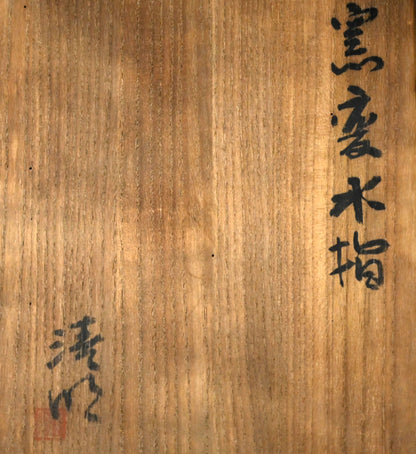 窯変水指
清明